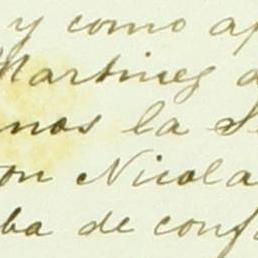 y como ap
Martinez a
nos la Se
on Nicola
ba de conf